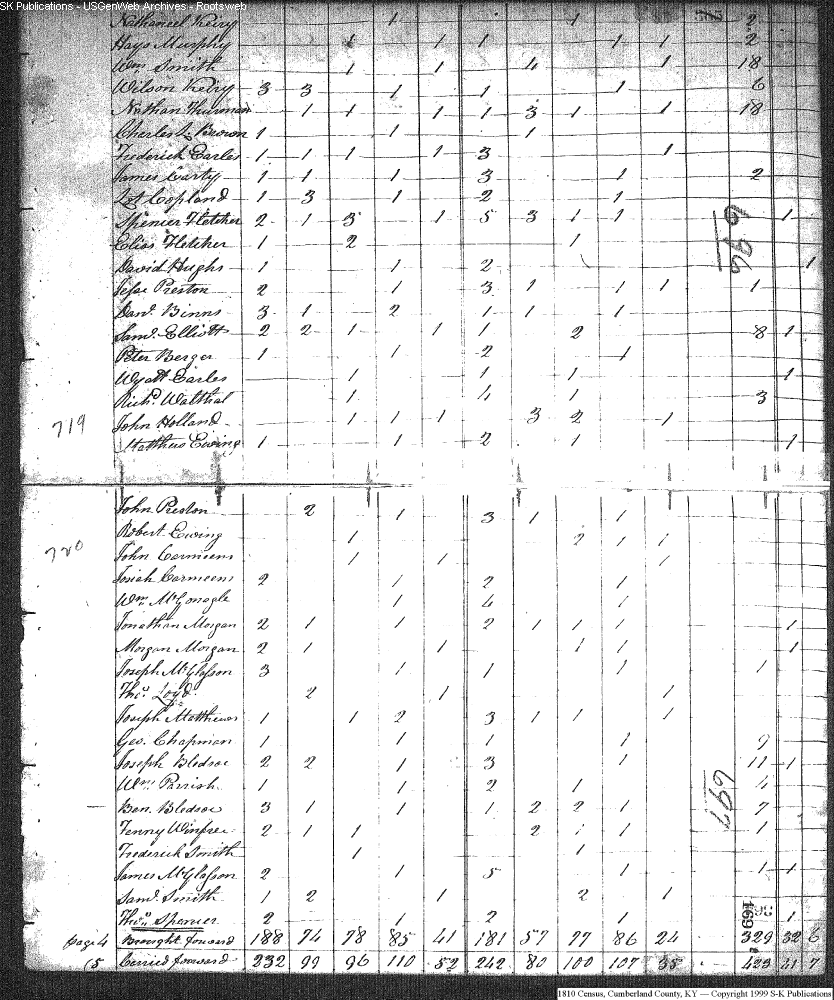 SK Publications - USGenWeb Archives - Rootsweb
Nathaniel Kelry 1 1 2
Hays Murphy 1 1 1 1 1 2
Wm Smith 1 1 4 1 18
Wilson Kelry 3 3 1 1 1 6
Nathan Thurman 1 1 1 1 3 1 1 18
Charles L Brown 1 1 1
Frederick Earles 1 1 1 1 3 1
James Carty 1 1 1 3 1 2
Lot Copland 1 3 1 2 1
Spencer Fletcher 2 1 3 1 5 3 1 1 1
Elias Fletcher 1 2 1
696
David Hughs 1 1 2 1
Jesse Preston 2 1 3 1 1 1 1
Danl Binns 3 1 2 1 1 1
Saml Elliott 2 2 1 1 1 2 8 1
Peter Berger 1 1 2 1
Wyatt Earles 1 1 1 1
Richd Walthal 1 4 1 3
719 John Holland 1 1 1 3 2 1
Matthew Ewing 1 1 2 1 1
John Preston 2 1 3 1 1
Robert Ewing 1 2 1 1
720 John Carmeens 1 1 1
Josiah Carmeens 2 1 2 1
Wm McGonagle 1 4 1
Jonathan Morgan 2 1 1 2 1 1 1 1
Morgan Morgan 2 1 1 1 1 1
Joseph McGlasson 3 1 1 1 1
Thos Loyd 2 1 1
Joseph Matthews 1 1 2 3 1 1 1
Geo. Chapman 1 1 1 1 9
Joseph Bledsoe 2 2 1 3 1 11 1
Wm Parrish 1 1 2 1 4
697
Ben. Bledsoe 3 1 1 1 2 2 1 7
Tenny Winfree 2 1 1 2 1 1 1
Frederick Smith 1 1
James McGlasson 2 1 5 1 1 1
Saml Smith 1 2 1 2 1
Thos Spencer 2 1 2 1 1
page 4 Brought forward 188 74 78 85 41 181 57 77 86 24 329 32 6
(5 Carried forward 232 99 96 110 52 242 80 100 107 35 423 41 7
1810 Census, Cumberland County, KY — Copyright 1999 S-K Publications